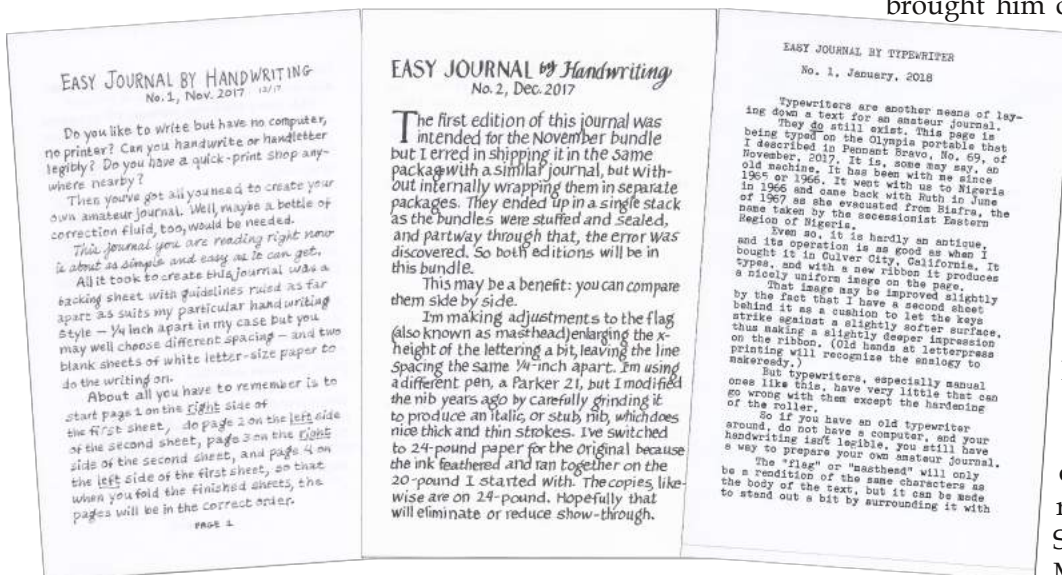 brought him
EASY JOURNAL BY HANDWRITING
No. 1, Nov. 2017 12/17
Do you like to write but have no computer,
no printer? Can you handwrite or handletter
legibly? Do you have a quick-print shop any-
where nearby?
Then you've got all you need to create your
own amateur journal. Well, maybe a bottle of
correction fluid, too, would be needed.
This journal you are reading right now
is about as simple and easy as it can get.
All it took to create this journal was a
backing sheet with guidelines ruled as far
apart as suits my particular handwriting
style – 1/4 inch apart in my case but you
may well choose different spacing – and two
blank sheets of white letter-size paper to
do the writing on.
About all you have to remember is to
start page 1 on the right side of
the first sheet, do page 2 on the left side
of the second sheet, page 3 on the right
side of the second sheet, and page 4 on
the left side of the first sheet, so that
when you fold the finished sheets, the
pages will be in the correct order.
PAGE 1
EASY JOURNAL by Handwriting
No. 2, Dec. 2017
The first edition of this journal was
intended for the November bundle
but I erred in shipping it in the same
package with a similar journal, but with-
out internally wrapping them in separate
packages. They ended up in a single stack
as the bundles were stuffed and sealed,
and partway through that, the error was
discovered. So both editions will be in
this bundle.
This may be a benefit: you can compare
them side by side.
Im making adjustments to the flag
(also known as masthead) enlarging the x-
height of the lettering a bit, leaving the line
spacing the same 1/4-inch apart. Im using
a different pen, a Parker 21, but I modified
the nib years ago by carefully grinding it
to produce an italic, or stub, nib, which does
nice thick and thin strokes. I've switched
to 24-pound paper for the original because
the ink feathered and ran together on the
20-pound I started with. The copies, like-
wise are on 24-pound. Hopefully that
will eliminate or reduce show-through.
EASY JOURNAL BY TYPEWRITER
No. 1, January, 2018
Typewriters are another means of lay-
ing down a text for an amateur journal.
They do still exist. This page is
being typed on the Olympia portable that
I described in Pennant Bravo, No. 69, of
November, 2017. It is, some may say, an
old machine. It has been with me since
1965 or 1966. It went with us to Nigeria
in 1966 and came back with Ruth in June
of 1967 as she evacuated from Biafra, the
name taken by the secessionist Eastern
Region of Nigeria.
Even so, it is hardly an antique,
and its operation is as good as when I
bought it in Culver City, California. It
types, and with a new ribbon it produces
a nicely uniform image on the page.
That image may be improved slightly
by the fact that I have a second sheet
behind it as a cushion to let the keys
strike against a slightly softer surface,
thus making a slightly deeper impression
on the ribbon. (Old hands at letterpress
printing will recognize the analogy to
makeready.)
But typewriters, especially manual
ones like this, have very little that can
go wrong with them except the hardening
of the roller.
So if you have an old typewriter
around, do not have a computer, and your
handwriting isn't legible, you still have
a way to prepare your own amateur journal.
The "flag" or "masthead" will only
be a rendition of the same characters as
the body of the text, but it can be made
to stand out a bit by surrounding it with